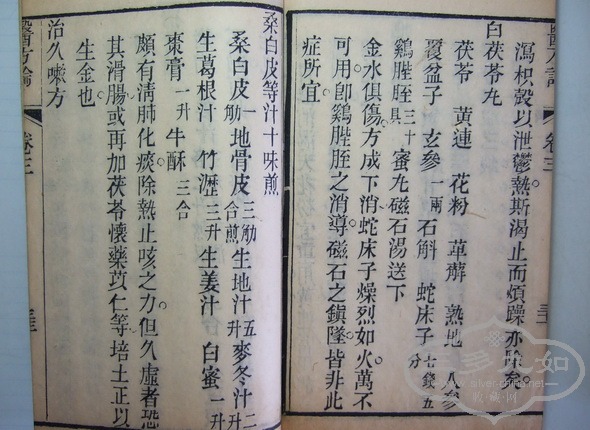 瀉枳殼以泄鬱熱斯渴止而煩躁亦除矣
白茯苓丸
茯苓 黄連 花粉 萆薢 熟地 人參
覆盆子 玄參一兩 石斛 蛇床子七錢五分
鷄膍胵三十具 蜜丸磁石湯送下
金水俱傷方成下消蛇床子燥烈如火萬不
可用卽鷄膍胵之消導磁石之鎮墜皆非此
症所宜
醫方論
卷三
桑白皮等汁十味煎
桑白皮一觔 地骨皮三觔合煎 生地汁五升 麥冬汁二升
生葛根汁 竹瀝三升 生姜汁 白蜜一升
棗膏一升 牛酥三合
頗有淸肺化痰除熱止咳之力但久虛者恐
其滑腸或再加茯苓懷藥苡仁等培土正以
生金也
治久嗽方
醫方論
卷三
多又如
www.silver-china.net
收藏网